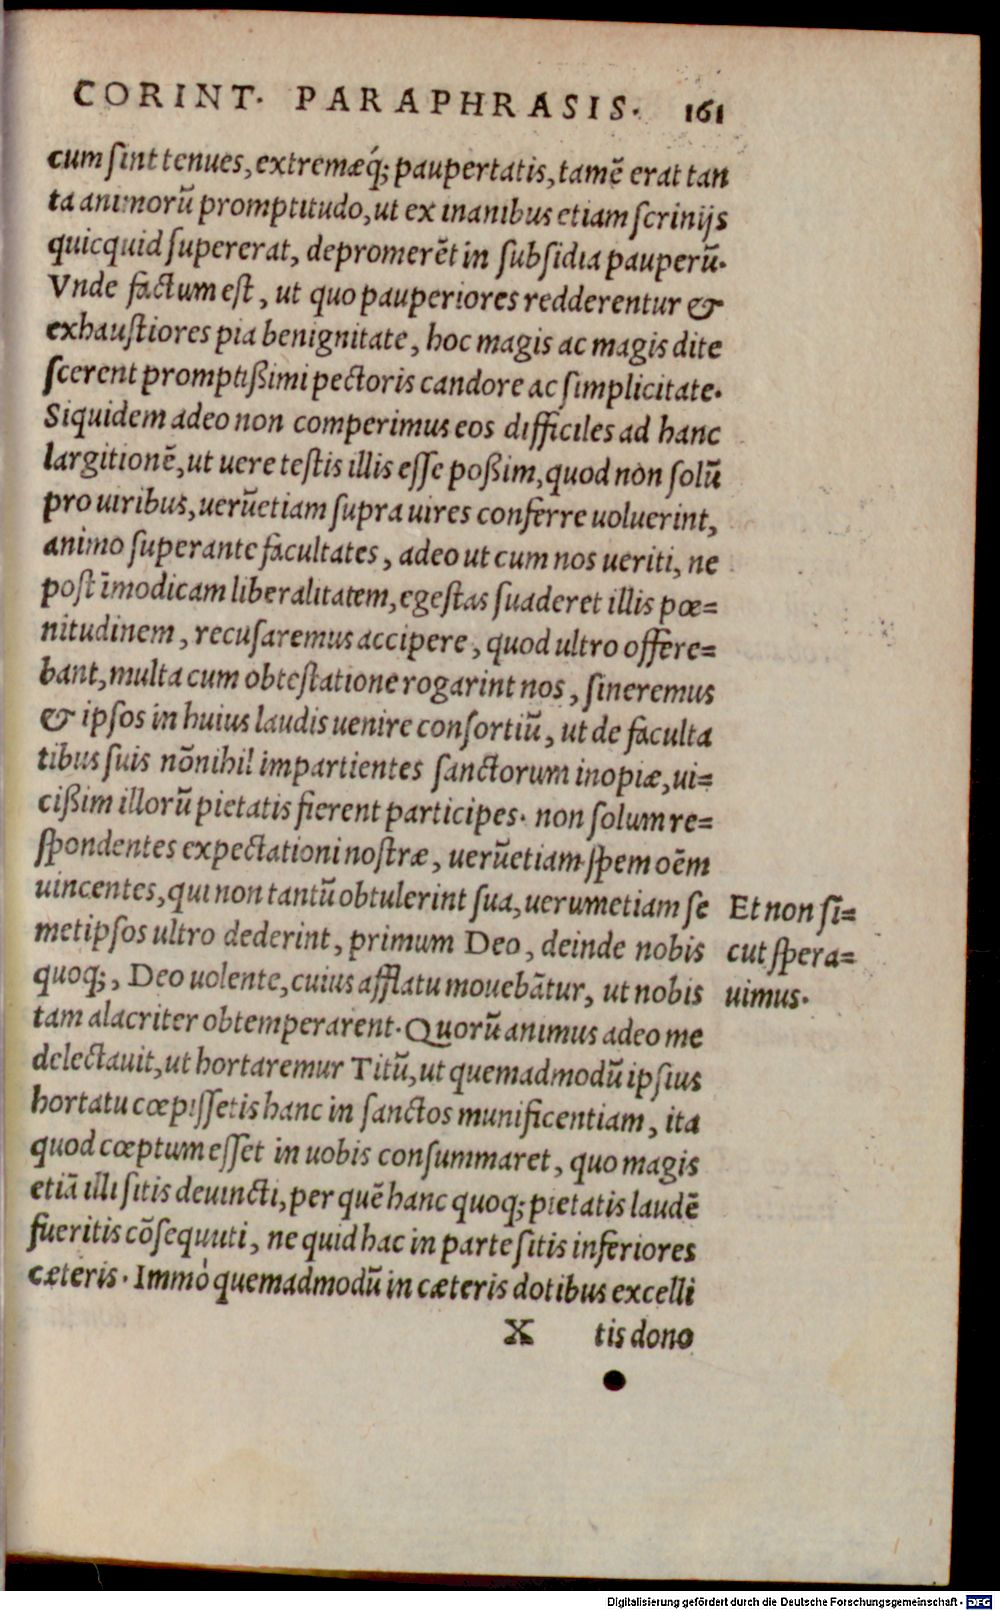 CORINT. PARAPHRASIS. 161
cum ſint tenues, extremæq́; paupertatis, tamẽ erat tan
ta animorũ promptitudo, ut ex inanibus etiam ſcrinijs
quicquid ſupererat, depromerẽt in ſubſidia pauperũ.
Vnde factum eſt, ut quo pauperiores redderentur &
exhauſtiores pia benignitate, hoc magis ac magis dite
ſcerent promptißimi pectoris candore ac ſimplicitate.
Siquidem adeo non comperimus eos difficiles ad hanc
largitionẽ, ut uere teſtis illis eſſe poßim, quod non ſolũ
pro uiribus, uerũetiam ſupra uires conferre uoluerint,
animo ſuperante facultates, adeo ut cum nos ueriti, ne
poſt ĩmodicam liberalitatem, egeſtas ſuaderet illis pœ=
nitudinem, recuſaremus accipere, quod ultro offere=
bant, multa cum obteſtatione rogarint nos, ſineremus
& ipſos in huius laudis uenire conſortiũ, ut de faculta
tibus ſuis nõnihil impartientes ſanctorum inopiæ, ui=
cißim illorũ pietatis fierent participes. non ſolum re=
ſpondentes expectationi noſtræ, uerũetiam ſpem oẽm
uincentes, qui non tantũ obtulerint ſua, uerumetiam ſe
metipſos ultro dederint, primum Deo, deinde nobis
quoq;, Deo uolente, cuius afflatu mouebãtur, ut nobis
tam alacriter obtemperarent. Quorũ animus adeo me
delectauit, ut hortaremur Titũ, ut quemadmodũ ipſius
hortatu cœpiſſetis hanc in ſanctos munificentiam, ita
quod cœptum eſſet in uobis conſummaret, quo magis
etiã illi ſitis deuincti, per quẽ hanc quoq; pietatis laudẽ
fueritis cõſequuti, ne quid hac in parte ſitis inferiores
cæteris. Immò quemadmodũ in cæteris dotibus excelli
X tis dono
Et non ſi=
cut ſpera=
uimus.
Digitalisierung gefördert durch die Deutsche Forschungsgemeinschaft - DFG